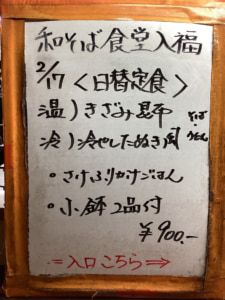 和そば食堂入福
2/17 <日替定食>
温)きざみ昆布
冷)冷やしたぬき風
そば・うどん
・さけふりかけごはん
・小鉢2品付
¥900.-
=入口こちら⇒